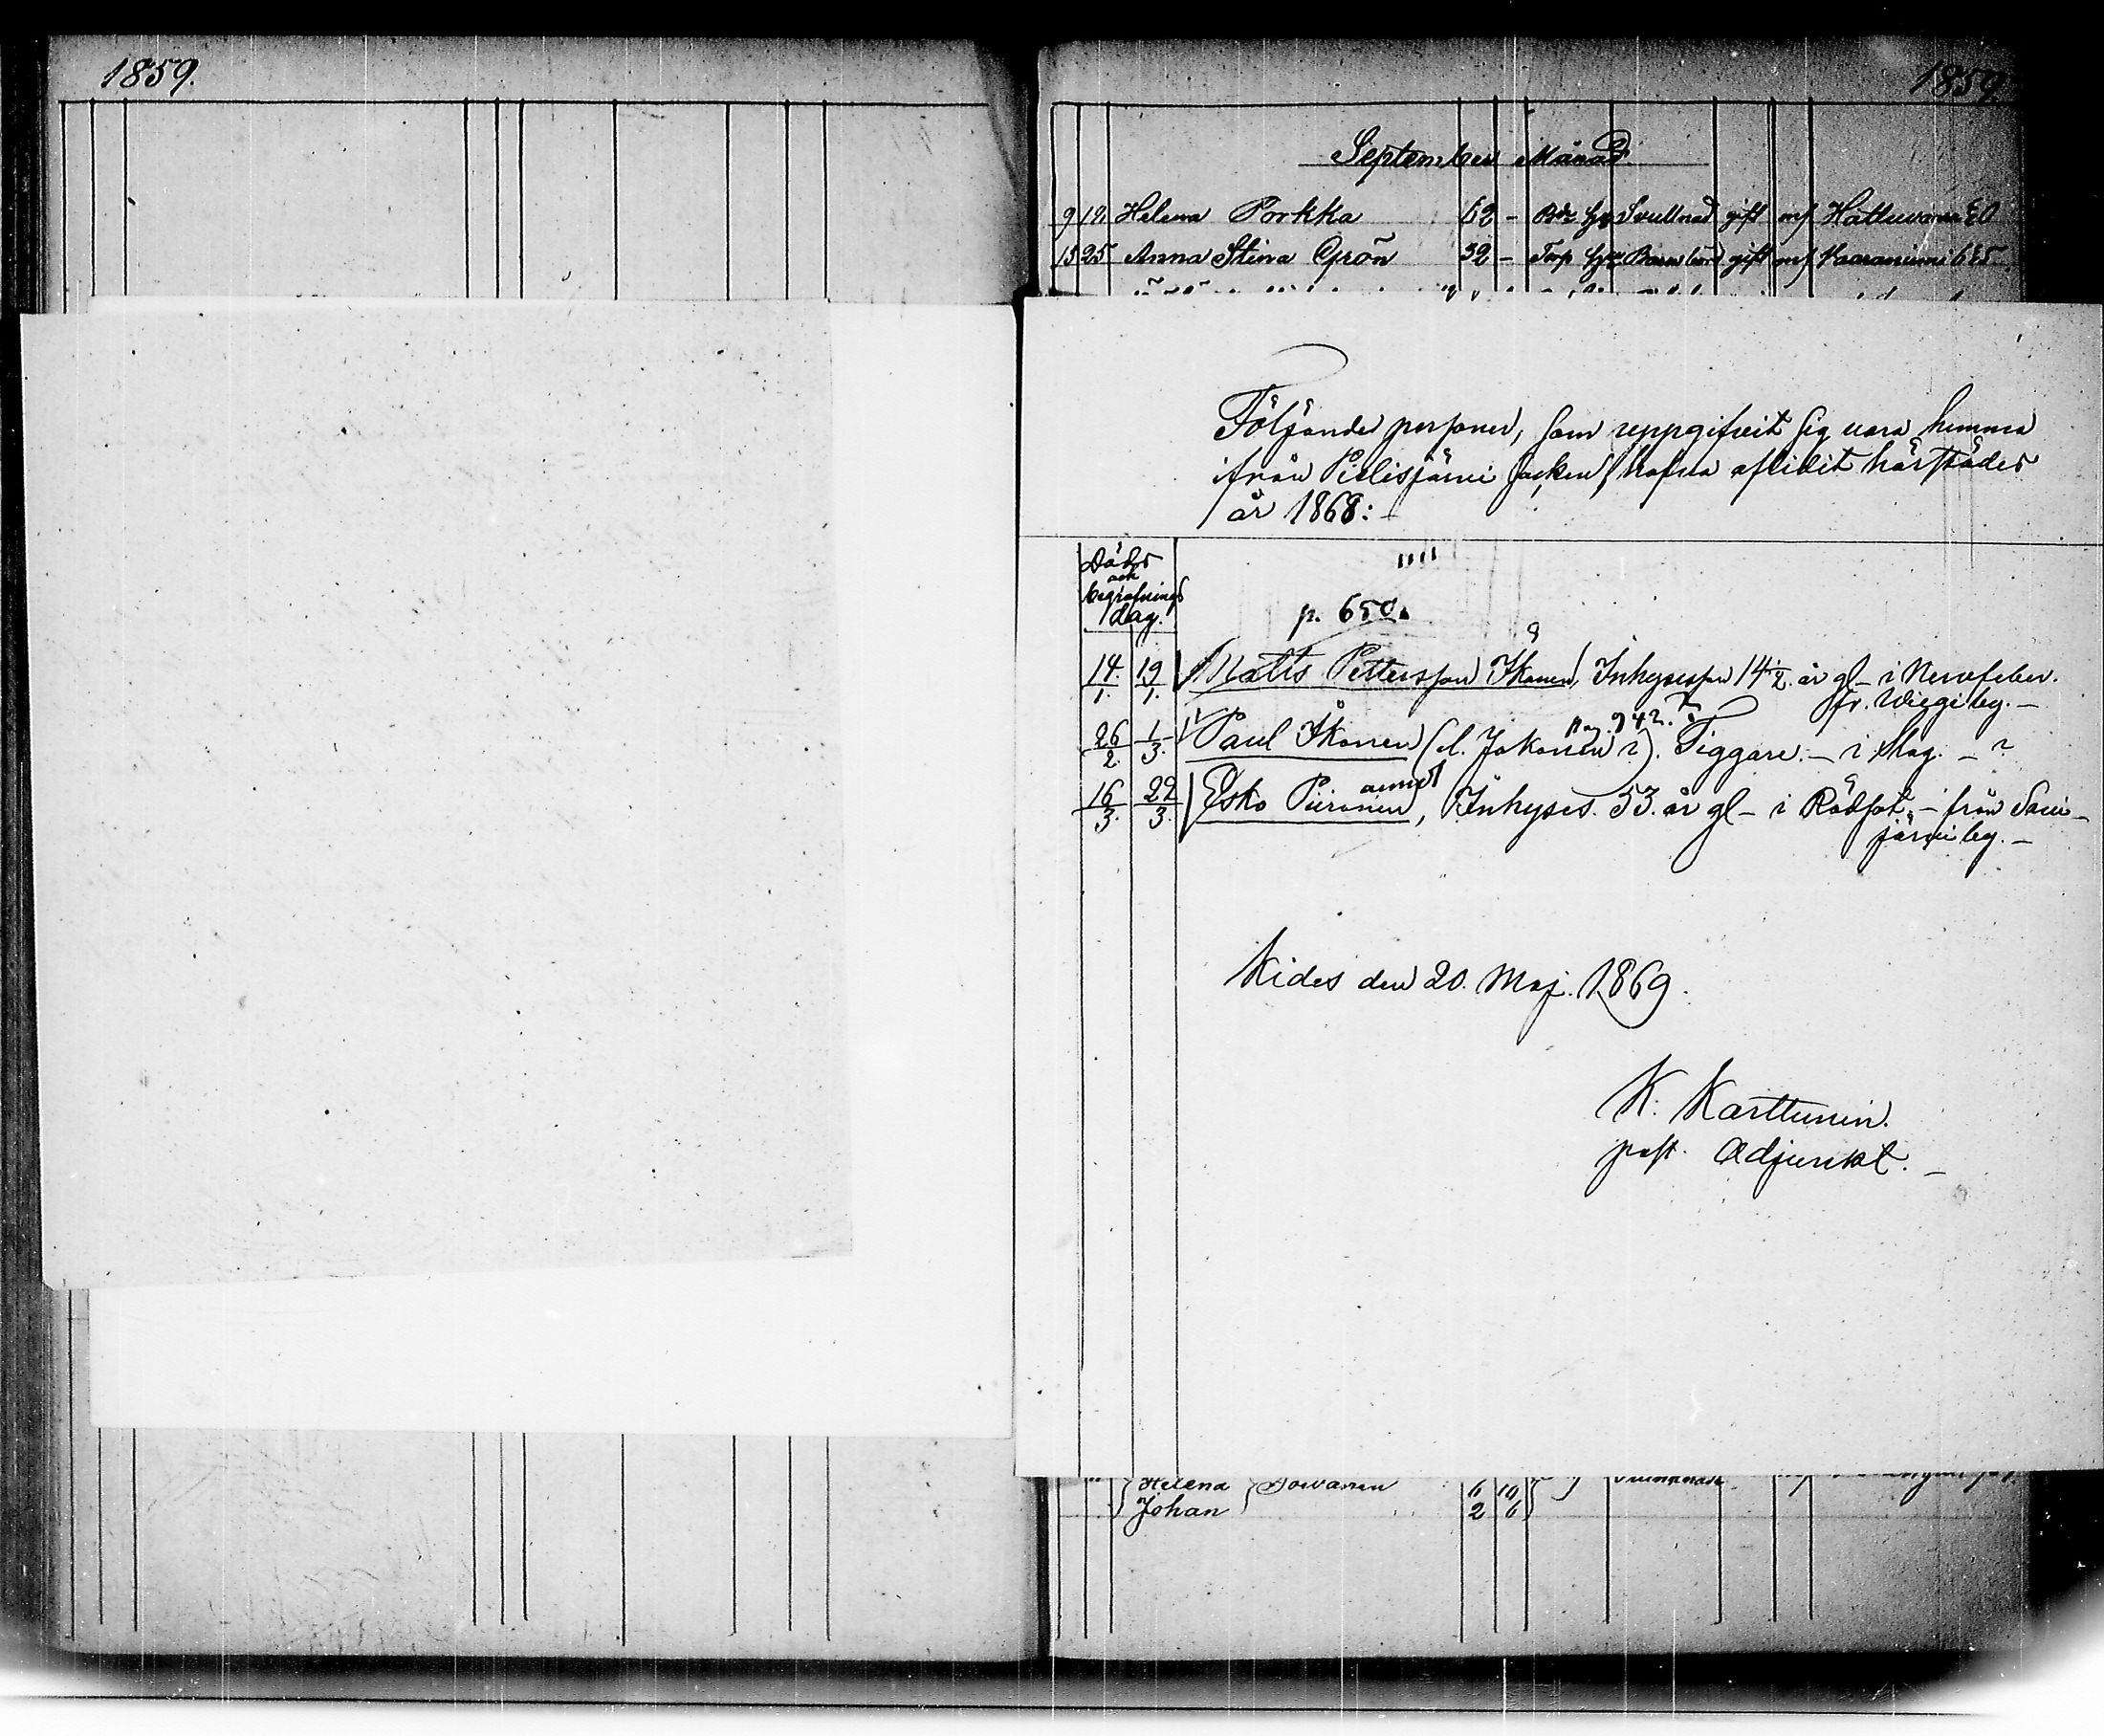 1859.
1859
September Månad
9 12 Helena Porkka 62 - Svullnad gift Hattuvaara 20
13 25 Anna Stina Grön 32 - Torp Barnbörd gift Vaaraniemi 6
Följande personer, som uppgifvit sig vara hemma
ifrån Pielisjärvi Socken, hafva aflidit härstädes
år 1868:-
Döds
och
begrafnings
dag.
p. 650.
14. 19 Matts Pettersson Ikonen, Inhysesson 14½ år gl - i Nervfeber.
1. 1. fr. Wiegi by. -
pag. 942. ?
26 1 Paul Ikonen (l. Jokonen ?). Tiggare. - i Slag. - ?
2. 3.
16 22 Esko Piironen, Inhyses. 53. år gl - i Rödsot. - från Savi-
3. 3. järvi by. -
Kides den 20. Maj. 1869.
K. Karttunen.
past. Adjunkt. -
Helena Toivanen 6 10
Johan 2 6